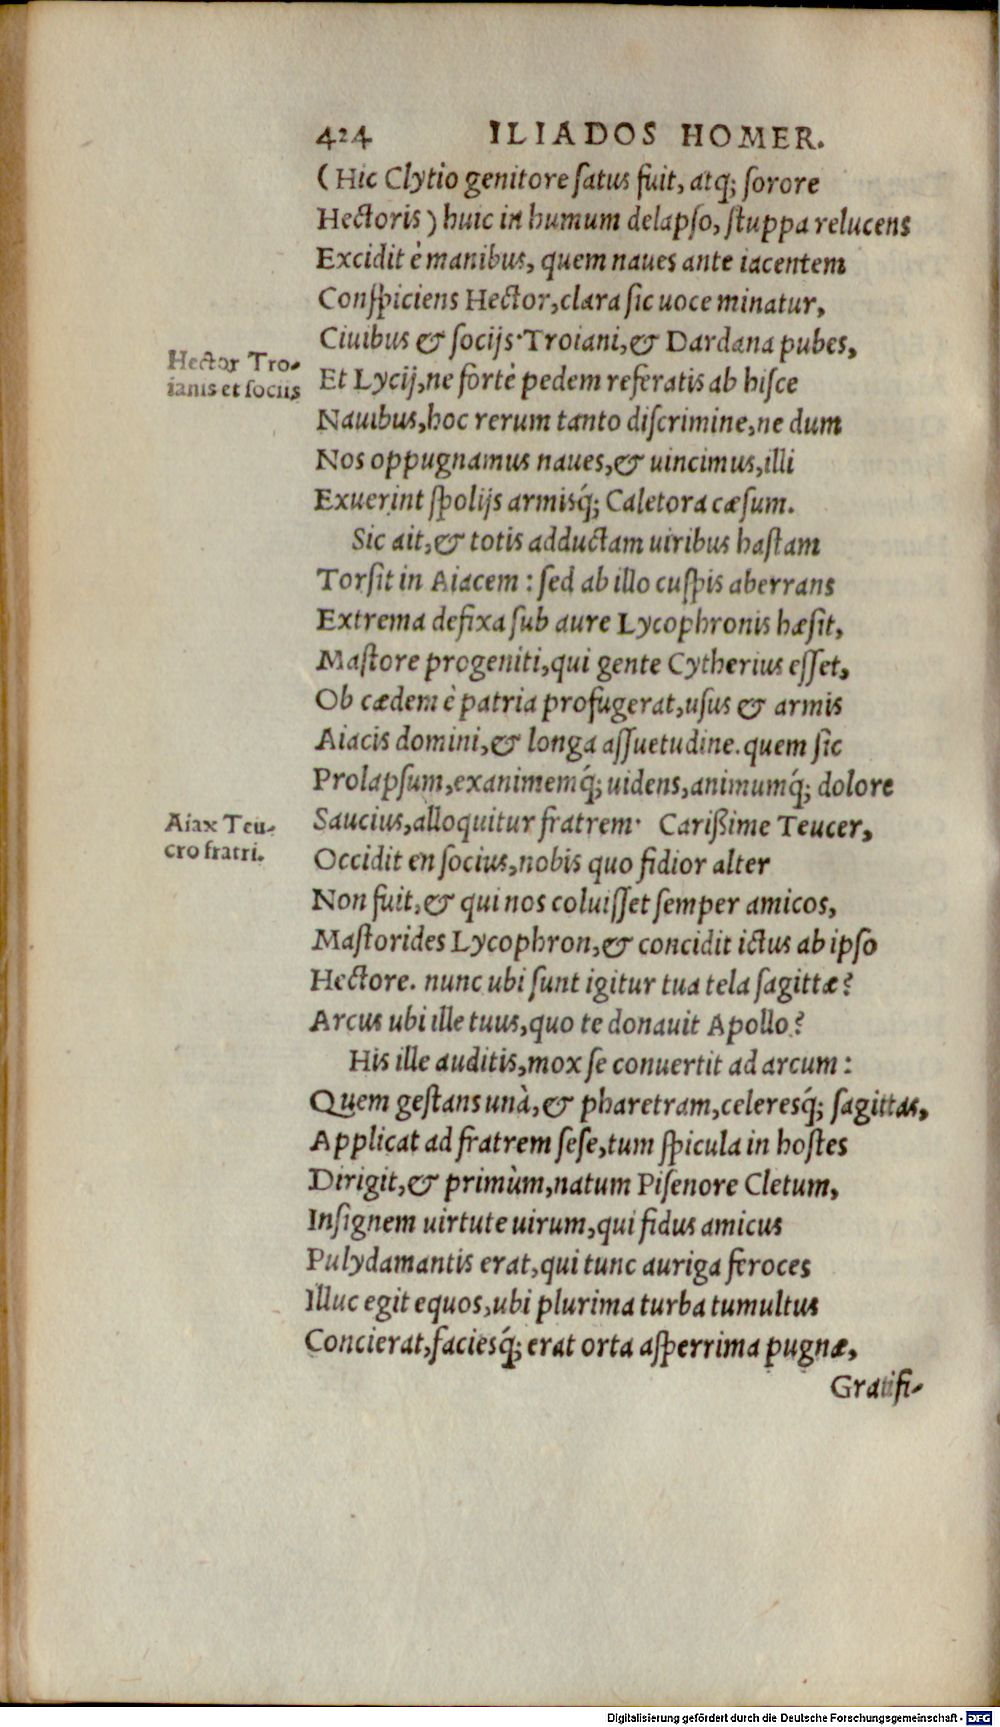 424 ILIADOS HOMER.
(Hic Clytio genitore ſatus fuit, atq; ſorore
Hectoris) huic in humum delapſo, ſtuppa relucens
Excidit è manibus, quem naues ante iacentem
Conſpiciens Hector, clara ſic uoce minatur,
Ciuibus & ſocijs·Troiani, & Dardana pubes,
Hector Tro-
ianis et sociis
Et Lycij, ne fortè pedem referatis ab hiſce
Nauibus, hoc rerum tanto diſcrimine, ne dum
Nos oppugnamus naues, & uincimus, illi
Exuerint ſpolijs armisq́; Caletora cæſum.
Sic ait, & totis adductam uiribus haſtam
Torſit in Aiacem: ſed ab illo cuſpis aberrans
Extrema defixa ſub aure Lycophronis hæſit,
Maſtore progeniti, qui gente Cytherius eſſet,
Ob cædem è patria profugerat, uſus & armis
Aiacis domini, & longa aſſuetudine. quem ſic
Prolapſum, exanimemq́; uidens, animumq́; dolore
Aiax Teu-
cro fratri.
Saucius, alloquitur fratrem· Carißime Teucer,
Occidit en ſocius, nobis quo fidior alter
Non fuit, & qui nos coluiſſet ſemper amicos,
Maſtorides Lycophron, & concidit ictus ab ipſo
Hectore. nunc ubi ſunt igitur tua tela ſagittæ?
Arcus ubi ille tuus, quo te donauit Apollo?
His ille auditis, mox ſe conuertit ad arcum:
Quem geſtans unà, & pharetram, celeresq́; ſagittas,
Applicat ad fratrem ſeſe, tum ſpicula in hoſtes
Dirigit, & primùm, natum Piſenore Cletum,
Inſignem uirtute uirum, qui fidus amicus
Pulydamantis erat, qui tunc auriga feroces
Illuc egit equos, ubi plurima turba tumultus
Concierat, faciesq́; erat orta aſperrima pugnæ,
Gratifi-
Digitalisierung gefördert durch die Deutsche Forschungsgemeinschaft - DFG